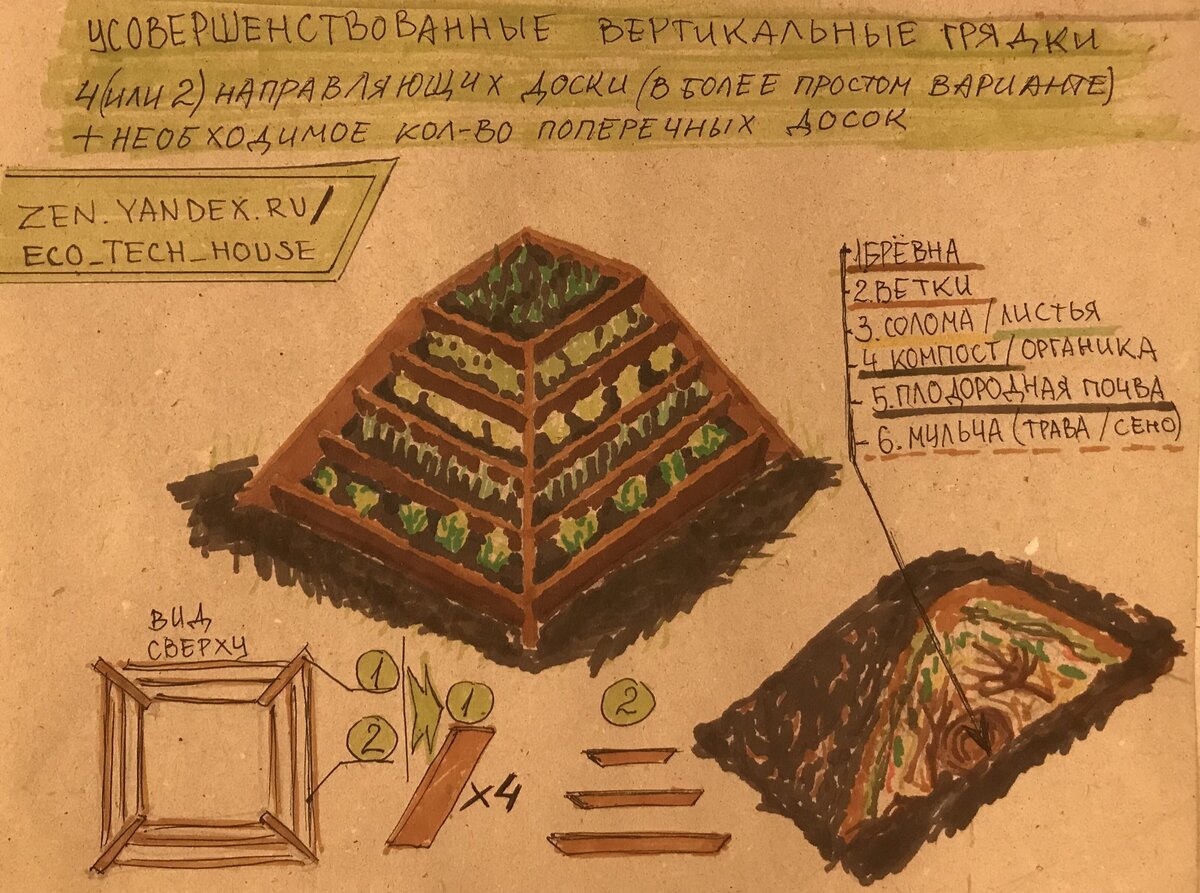 УСОВЕРШЕНСТВОВАННЫЕ ВЕРТИКАЛЬНЫЕ ГРЯДКИ
4(ИЛИ 2) НАПРАВЛЯЮЩИХ ДОСКИ (В БОЛЕЕ ПРОСТОМ ВАРИАНТЕ)
+ НЕОБХОДИМОЕ КОЛ-ВО ПОПЕРЕЧНЫХ ДОСОК
ZEN.YANDEX.RU/
ECO_TECH_HOUSE
1 БРЁВНА
2. ВЕТКИ
3. СОЛОМА / ЛИСТЬЯ
4 КОМПОСТ / ОРГАНИКА
5. ПЛОДОРОДНАЯ ПОЧВА
6. МУЛЬЧА (ТРАВА / СЕНО)
ВИД
СВЕРХУ
1
2
1
x4
2